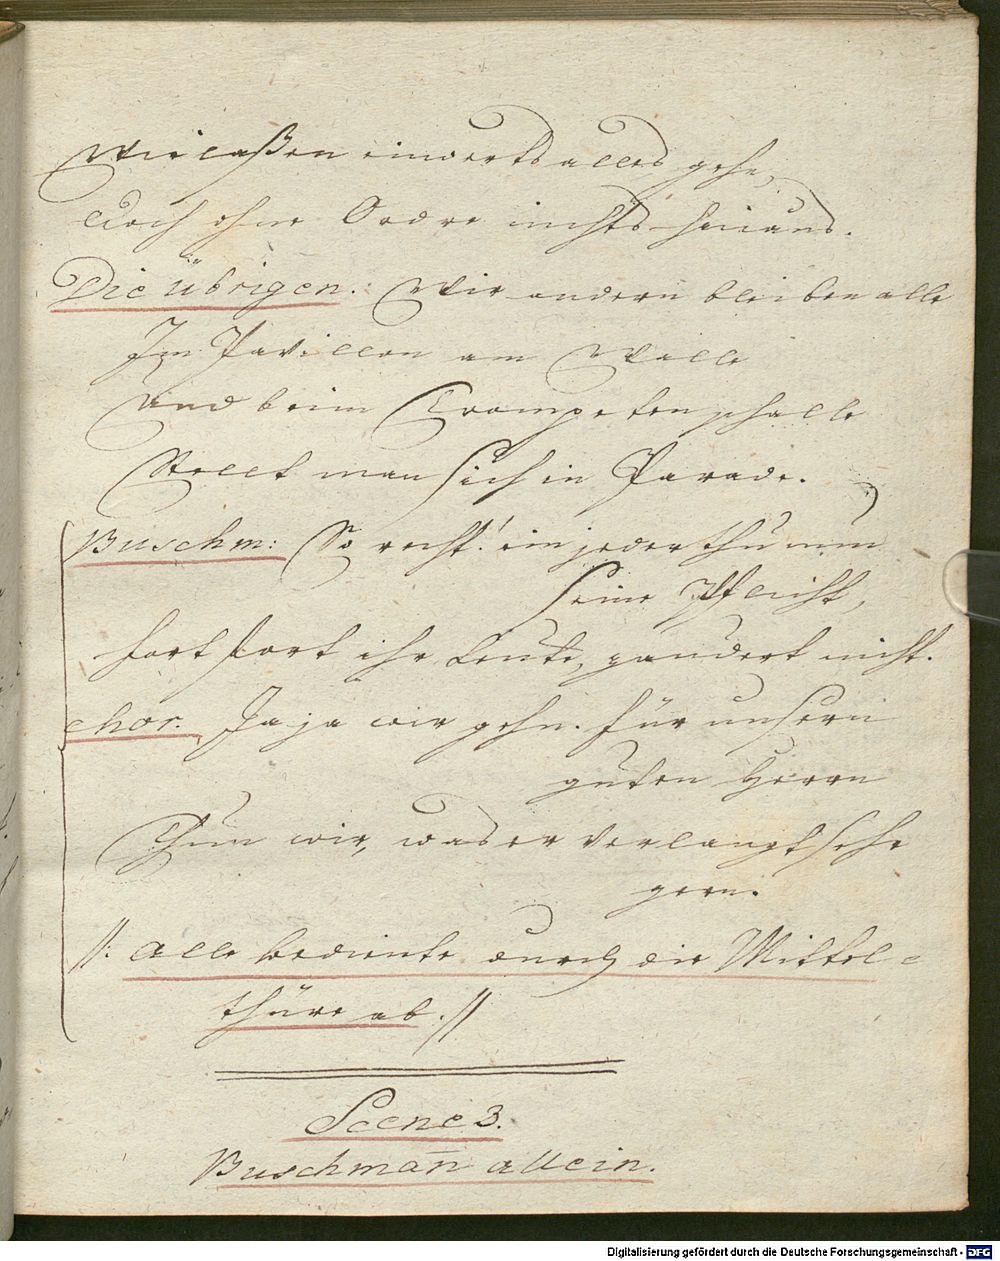 Wir laßen einwerts alles gehn,
Doch ohne Ordre nichts hinaus.
Die übrigen. Wir andern bleiben alle
Im Pavillon am Walle
Und beim Trompetenschalle
Stellt man sich in Parade.
Buschm: So recht! ein jeder thu nun
seine Pflicht,
fort fort ihr Leute, zaudert nicht.
Chor. Ja ja wir gehn. für unsern
guten Herrn
Thun wir, was er verlangt sehr
gern.
//: Alle Bediente durch die Mittel=
thüre ab. //
Scene 3.
Buschman̄ allein.
Digitalisierung gefördert durch die Deutsche Forschungsgemeinschaft - DFG